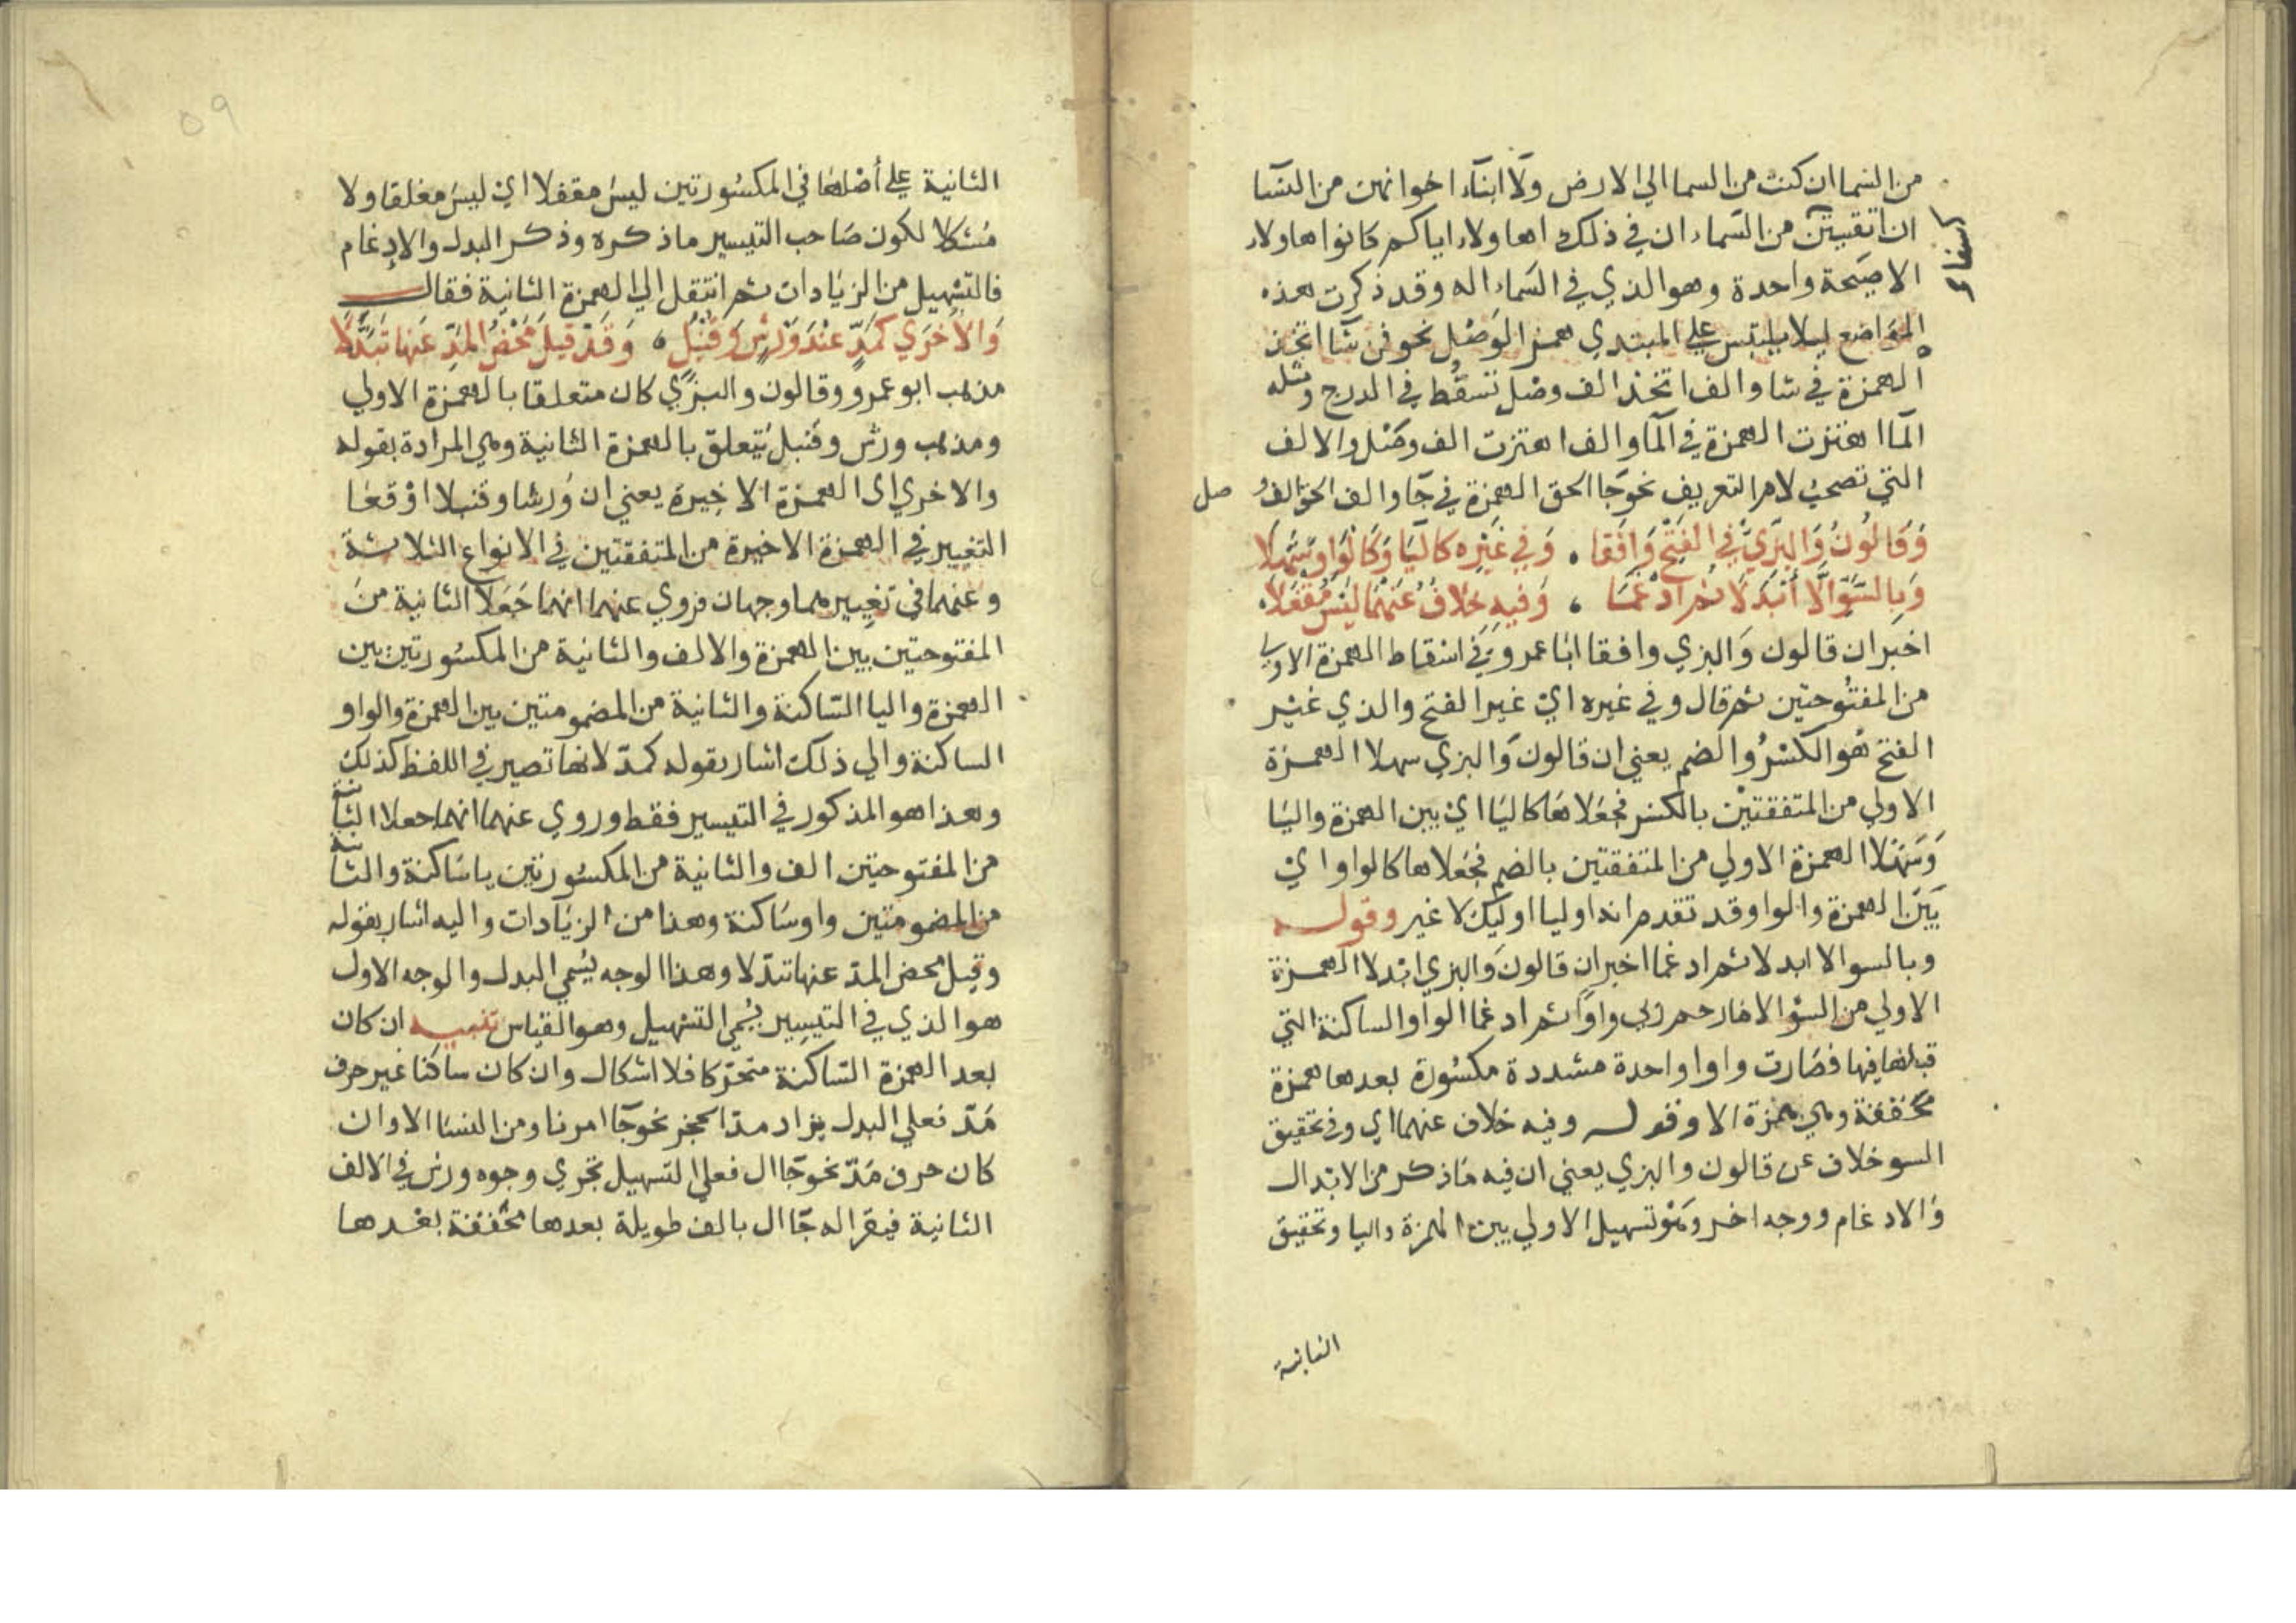 من السما ان كنت من السما الي الارض ولا ابناء اخوانهن من النسا
ان اتقيتن من السماء ان في ذلك اهاولاء اياكم كانوا هاولاء
الاصيحة واحدة وهو الذي في السماء اله وقد ذكرت هذه
المواضع ليلا يلتبس علي المبتدي همز الوصل نحو فمن شا اتخذ
الهمزة في شا والف اتخذ الف وصل تسقط في الدرج ومثله
الما اهتزت الهمزة في الما والف اهتزت الف وصل والالف
التي تصحب لام التعريف نحو جا الحق الهمزة في جا والف الحق الف وصل
وَقَالُونُ وَالبَزِّيُّ في الفَتْحِ وَافَقَا ، وَفي غَيْرِه كاليَا وَكَالوَاو سَهَّلا
وَبِالسُّوّ الَّا أَبْدَلَا ثُمَّ ادْغَمَا ، وَفيهِ خلافٌ عَنْهُمَا ليْسَ مُقْفَلَا
اخبر ان قالون والبزي وافقا ابا عمرو في اسقاط الهمزة الاولي
من المفتوحتين ثم قال وفي غيره اي غير الفتح والذي غير
الفتح هو الكسر والضم يعني ان قالون والبزي سهلا الهمزة
الاولي من المتفقتين بالكسر فجعلاها كاليا اي بين الهمزة واليا
وسهلا الهمزة الاولي من المتفقتين بالضم فجعلاها كالواو اي
بين الهمزة والواو وقد تقدم انه اوليا اوليك لا غير وقوله
وبالسو الا ابدلا ثم ادغما اخبر ان قالون والبزي ابدلا الهمزة
الاولي من السؤ الا مارحم ربي واوا ثم ادغما الواو الساكنة التي
قبلها فيها فصارت واوا واحدة مشددة مكسورة بعدها همزة
محققة وهي همزة الا وقوله وفيه خلاف عنهما اي وفي تحقيق
السو خلاف عن قالون والبزي يعني ان فيه ماذكر من الابدال
والادغام ووجه اخر وهو تسهيل الاولي بين الهمزة واليا وتحقيق
الثانية
٥٩
الثانية علي أصلها في المكسورتين ليس مقفلا اي ليس مغلقا ولا
مشكلا لكون صاحب التيسير ماذكره وذكر البدل والادغام
فالتسهيل من الزيادات ثم انتقل الي الهمزة الثانية فقال
وَالأخْرَي كَمَدٍّ عنْدَ وَرْشٍ وَقُنْبُلٍ ، وَقَدْ قيلَ مَحْضُ المَدِّ عَنهَا تَبَدَّلَا
مذهب ابو عمرو وقالون والبزي كان متعلقا بالهمزة الاولي
ومذهب ورش وقنبل يتعلق بالهمزة الثانية وهي المرادة بقوله
والاخري اي الهمزة الاخيرة يعني ان ورشا وقنبلا اوقعا
التغيير في الهمزة الاخيرة من المتفقتين في الانواع الثلاثة
وعنهما في تغييرهما وجهان فروي عنهما انهما جعلا الثانية من
المفتوحتين بين الهمزة والالف والثانية من المكسورتين بين
الهمزة واليا الساكنة والثانية من المضمومتين بين الهمزة والواو
الساكنة والي ذلك اشار بقوله كمد لانها تصير في اللفظ كذلك
وهذا هو المذكور في التيسير فقط وروي عنهما انهما جعلا الثانية
من المفتوحتين الف والثانية من المكسورتين يا ساكنة والثانية
من المضمومتين واو ساكنة وهذا من الزيادات واليه اشار بقوله
وقيل محض المد عنها تبدلا وهذا الوجه يسمي البدل والوجه الاول
هو الذي في التيسير يسمي التسهيل وهو القياس تنبيه ان كان
بعد الهمزة الساكنة متحركا فلا اشكال وان كان ساكنا غير حرف
مد فعلي البدل يزاد مدا لحجز نحو جا امرنا ومن النسا الا وان
كان حرف مد نحو جا ال فعلي التسهيل تجري وجوه ورش في الالف
الثانية فيقرا له جا ال بالف طويلة بعدها محققة بعدها